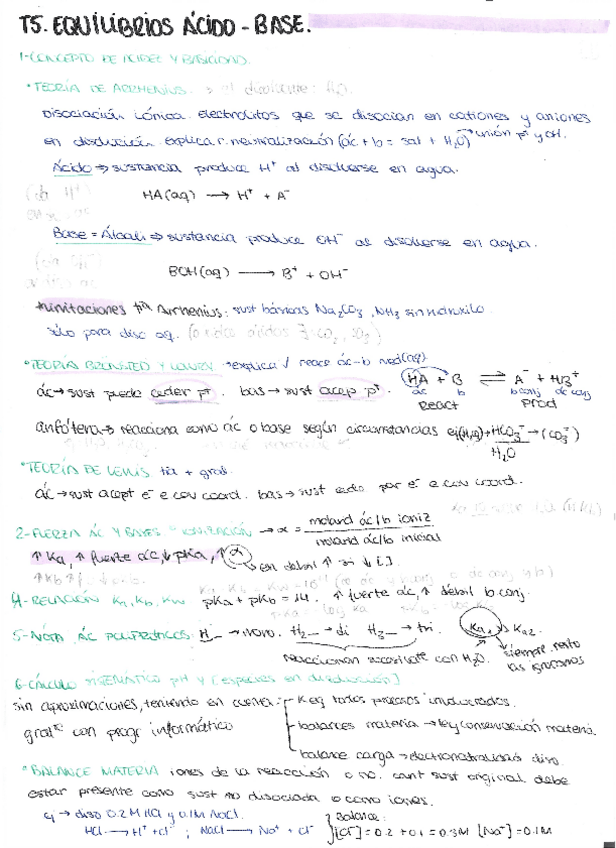 T5. EQUILIBRIOS ÁCIDO-BASE.
1-CONCEPTO DE ACIDEZ Y BASICIDAD.
•TEORÍA DE ARRHENIUS. al disolverse: H₂O.
Disociación iónica. electrolitos que se disocian en cationes y aniones
en disolución. explica r. neutralización (ác + b = sal + H₂O) → unión p⁺ y OH.
Ácido ⇒ sustancia produce H⁺ al disolverse en agua.
HA(aq) ⟶ H⁺ + A⁻
Base = Álcali ⇒ sustancia produce OH⁻ al disolverse en agua.
BOH(aq) ⟶ B⁺ + OH⁻
*Limitaciones tía Arrhenius: sust básicas Na₂CO₃, NH₃ sin hidroxilo.
sólo para disc aq.
•TEORÍA BRÖNSTED Y LOWRY →explica reacc ác-b no d(aq)
ác → sust puede ceder p⁺. bas → sust acep p⁺.
HA + B ⇌ A⁻ + HB⁺
ác b b conj ác conj
React Prod
anfótera → reacciona como ác o base según circunstancias ej(H₂O) + HCO₃⁻ → (CO₃⁼)
H₂O
•TEORÍA DE LEWIS tía + gral.
ác → sust acept e⁻ e cov coord. bas → sust cede par e⁻ e cov coord.
2-FUERZA ÁC Y BASES. IONIZACIÓN → α = molarid ác/b ioniz
molarid ác/b inicial
↑ Ka, ↑ fuerte ác, ↓ pKa, ↑ α → en débil ↑ si ↓ [ ].
4-RELACIÓN Ka, Kb, Kw pKa + pKb = 14. ↑ fuerte ác, ↑ débil b conj.
5-NOTA ÁC POLIPRÓTICOS H_ → mono. H₂_ → di H₃_ → tri. Ka₁ > Ka₂
reaccionan con H₂O. siempre, resto
las ignoramos
6-CÁLCULO SISTEMÁTICO pH Y [especies en disolución]
sin aproximaciones, teniendo en cuenta:
gral con progr informático
- K eq todos procesos involucrados.
- balances materia → ley conservación materia.
- balance carga → electroneutralidad diso.
•BALANCE MATERIA iones de la reacción o no. cant sust original debe
estar presente como sust no disociada o como iones.
ej → diso 0.2M HCl y 0.1M NaCl.
HCl ⟶ H⁺ + Cl⁻ ; NaCl ⟶ Na⁺ + Cl⁻
Balance:
[Cl⁻] = 0.2 + 0.1 = 0.3M [Na⁺] = 0.1M